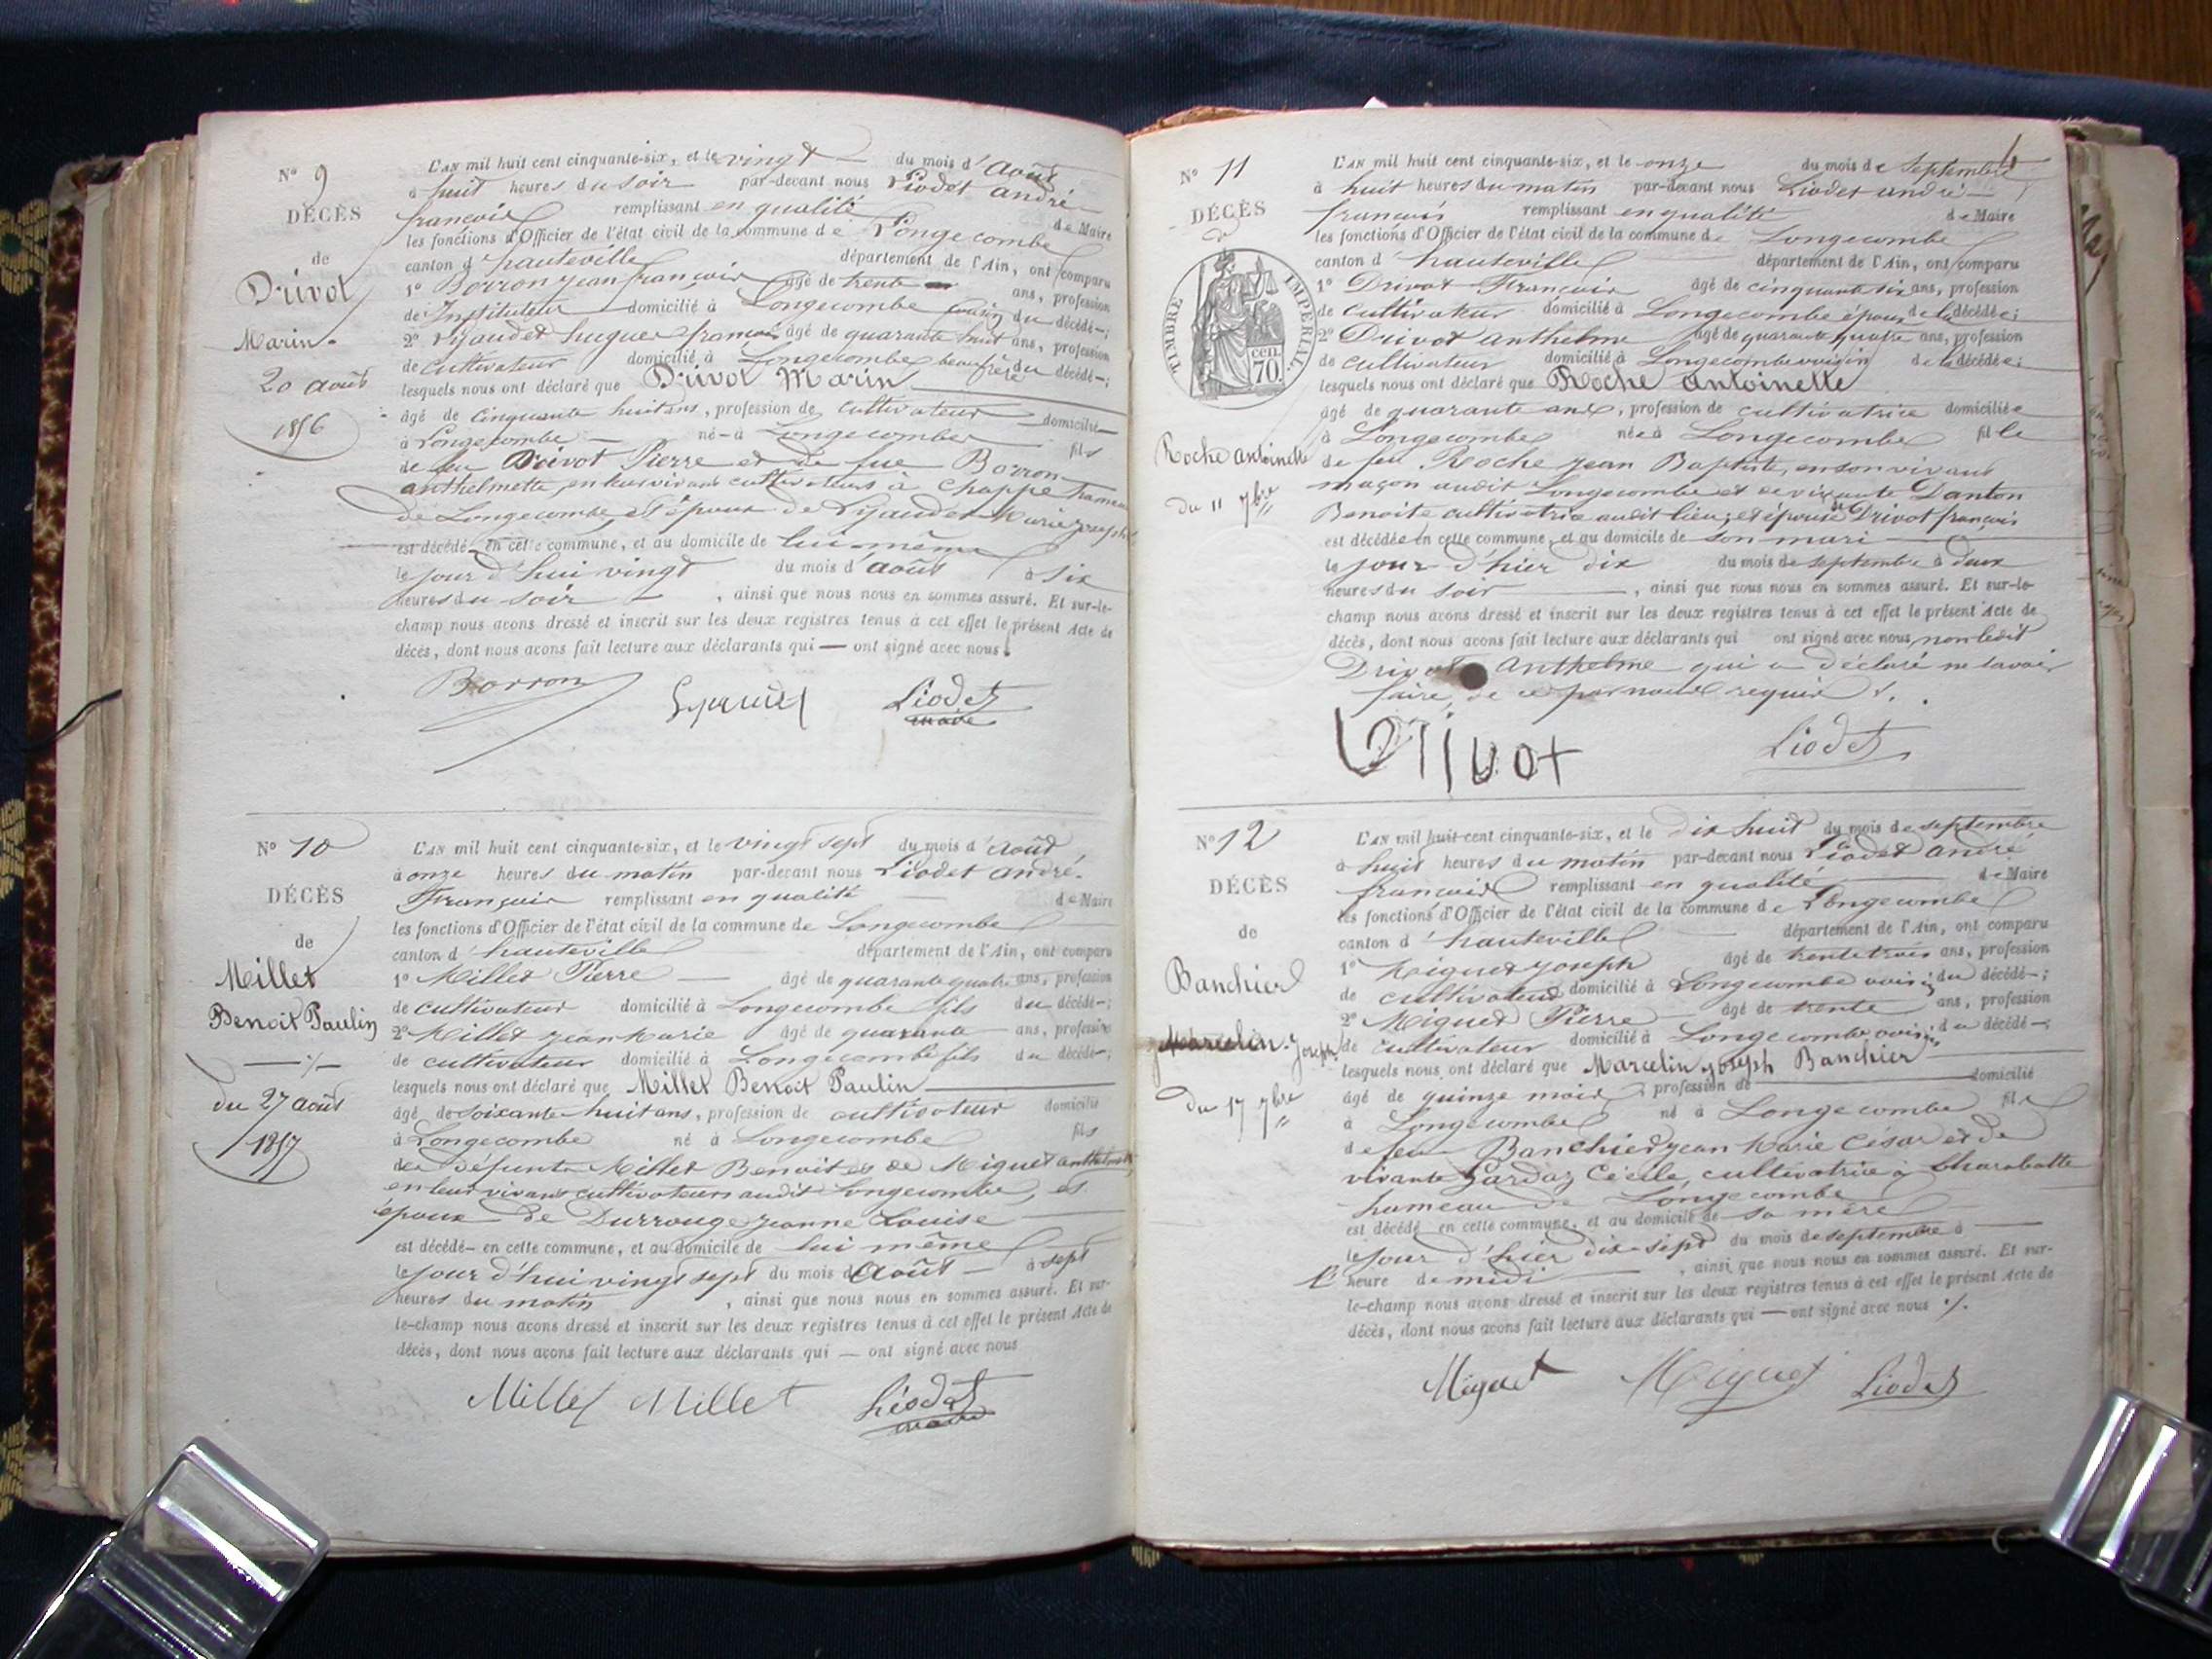 N° 9
DÉCÈS
de
Drivot
Marin.
20 août
1856
L'AN mil huit cent cinquante-six, et le vingt du mois d'août
à huit heures du soir par-devant nous Liodet andré
françois remplissant en qualité de Maire
les fonctions d'Officier de l'état civil de la commune de Longecombe
canton d'hauteville département de l'Ain, ont comparu
1° Borron jean françois âgé de trente ans, profession
de Instituteur domicilié à Longecombe cousin du décédé;
2° Lyaudet hugues françois âgé de quarante huit ans, profession
de cultivateur domicilié à Longecombe beaufrère du décédé;
lesquels nous ont déclaré que Drivot Marin
âgé de cinquante huit ans, profession de cultivateur domicilié
à Longecombe né à Longecombe fils
de feu Drivot Pierre et de fue Borron
anthelmette, en leur vivant cultivateurs à Chappe hameau
de Longecombe, et époux de Lyaudet Marie joseph
est décédé en cette commune, et au domicile de lui même
le jour d'hui vingt du mois d'août à six
heures du soir, ainsi que nous nous en sommes assuré. Et sur-le-
champ nous avons dressé et inscrit sur les deux registres tenus à cet effet le présent Acte de
décès, dont nous avons fait lecture aux déclarants qui — ont signé avec nous.
Borron Liodet
maire
N° 10
DÉCÈS
de
Millet
Benoit Paulin
du 27 août
1857
L'AN mil huit cent cinquante-six, et le vingt sept du mois d'août
à onze heures du matin par-devant nous Liodet andré
François remplissant en qualité de Maire
les fonctions d'Officier de l'état civil de la commune de Longecombe
canton d'hauteville département de l'Ain, ont comparu
1° Millet Pierre âgé de quarante quatre ans, profession
de cultivateur domicilié à Longecombe fils du décédé;
2° Millet jean Marie âgé de quarante ans, profession
de cultivateur domicilié à Longecombe fils du décédé;
lesquels nous ont déclaré que Millet Benoit Paulin
âgé de soixante-huit ans, profession de cultivateur domicilié
à Longecombe né à Longecombe fils
de défunts Millet Benoit et de Miguet
en leur vivant cultivateurs audit Longecombe, et
époux de Durrouge jeanne Louise
est décédé en cette commune, et au domicile de lui même
le jour d'hui vingt sept du mois d'août à sept
heures du matin, ainsi que nous nous en sommes assuré. Et sur-
le-champ nous avons dressé et inscrit sur les deux registres tenus à cet effet le présent Acte de
décès, dont nous avons fait lecture aux déclarants qui — ont signé avec nous
Millet Millet Liodet
maire
N° 11
DÉCÈS
de
TIMBRE IMPÉRIAL
70 cen.
Roche antoinette
du 11 7bre
L'AN mil huit cent cinquante-six, et le onze du mois de septembre
à huit heures du matin par-devant nous Liodet andré
françois remplissant en qualité de Maire
les fonctions d'Officier de l'état civil de la commune de Longecombe
canton d'hauteville département de l'Ain, ont comparu
1° Drivot François âgé de cinquante six ans, profession
de cultivateur domicilié à Longecombe époux de la décédée;
2° Drivot Anthelme âgé de quarante quatre ans, profession
de cultivateur domicilié à Longecombe voisin de la décédée;
lesquels nous ont déclaré que Roche Antoinette
âgé de quarante ans, profession de cultivatrice domiciliée
à Longecombe née à Longecombe fille
de feu Roche jean Baptiste, en son vivant
maçon audit Longecombe et de vivante Danton
Benoite cultivatrice audit lieu, et épouse de Drivot françois
est décédée en cette commune, et au domicile de son mari
le jour d'hier dix du mois de septembre à deux
heures du soir, ainsi que nous nous en sommes assuré. Et sur-le-
champ nous avons dressé et inscrit sur les deux registres tenus à cet effet le présent Acte de
décès, dont nous avons fait lecture aux déclarants qui ont signé avec nous, non ledit
Drivot Anthelme qui a déclaré ne savoir
faire, de ce par nous requis.
Drivot Liodet
N° 12
DÉCÈS
de
Banchier
Marcelin Joseph
du 17 7bre
L'AN mil huit cent cinquante-six, et le dix huit du mois de septembre
à huit heures du matin par-devant nous Liodet andré
françois remplissant en qualité de Maire
les fonctions d'Officier de l'état civil de la commune de Longecombe
canton d'hauteville département de l'Ain, ont comparu
1° Miguet joseph âgé de trente trois ans, profession
de cultivateur domicilié à Longecombe voisin du décédé;
2° Miguet Pierre âgé de trente ans, profession
de cultivateur domicilié à Longecombe voisin du décédé;
lesquels nous ont déclaré que Marcelin joseph Banchier
âgé de quinze mois, profession de domicilié
à Longecombe né à Longecombe fils
de feu Banchier jean Marie César et de
vivante Gardaz Cécile, cultivatrice à Charabotte
hameau de Longecombe
est décédé en cette commune, et au domicile de sa mère
le jour d'hier dix-sept du mois de septembre à
heure de midi, ainsi que nous nous en sommes assuré. Et sur-
le-champ nous avons dressé et inscrit sur les deux registres tenus à cet effet le présent Acte de
décès, dont nous avons fait lecture aux déclarants qui — ont signé avec nous ./.
Miguet Miguet Liodet